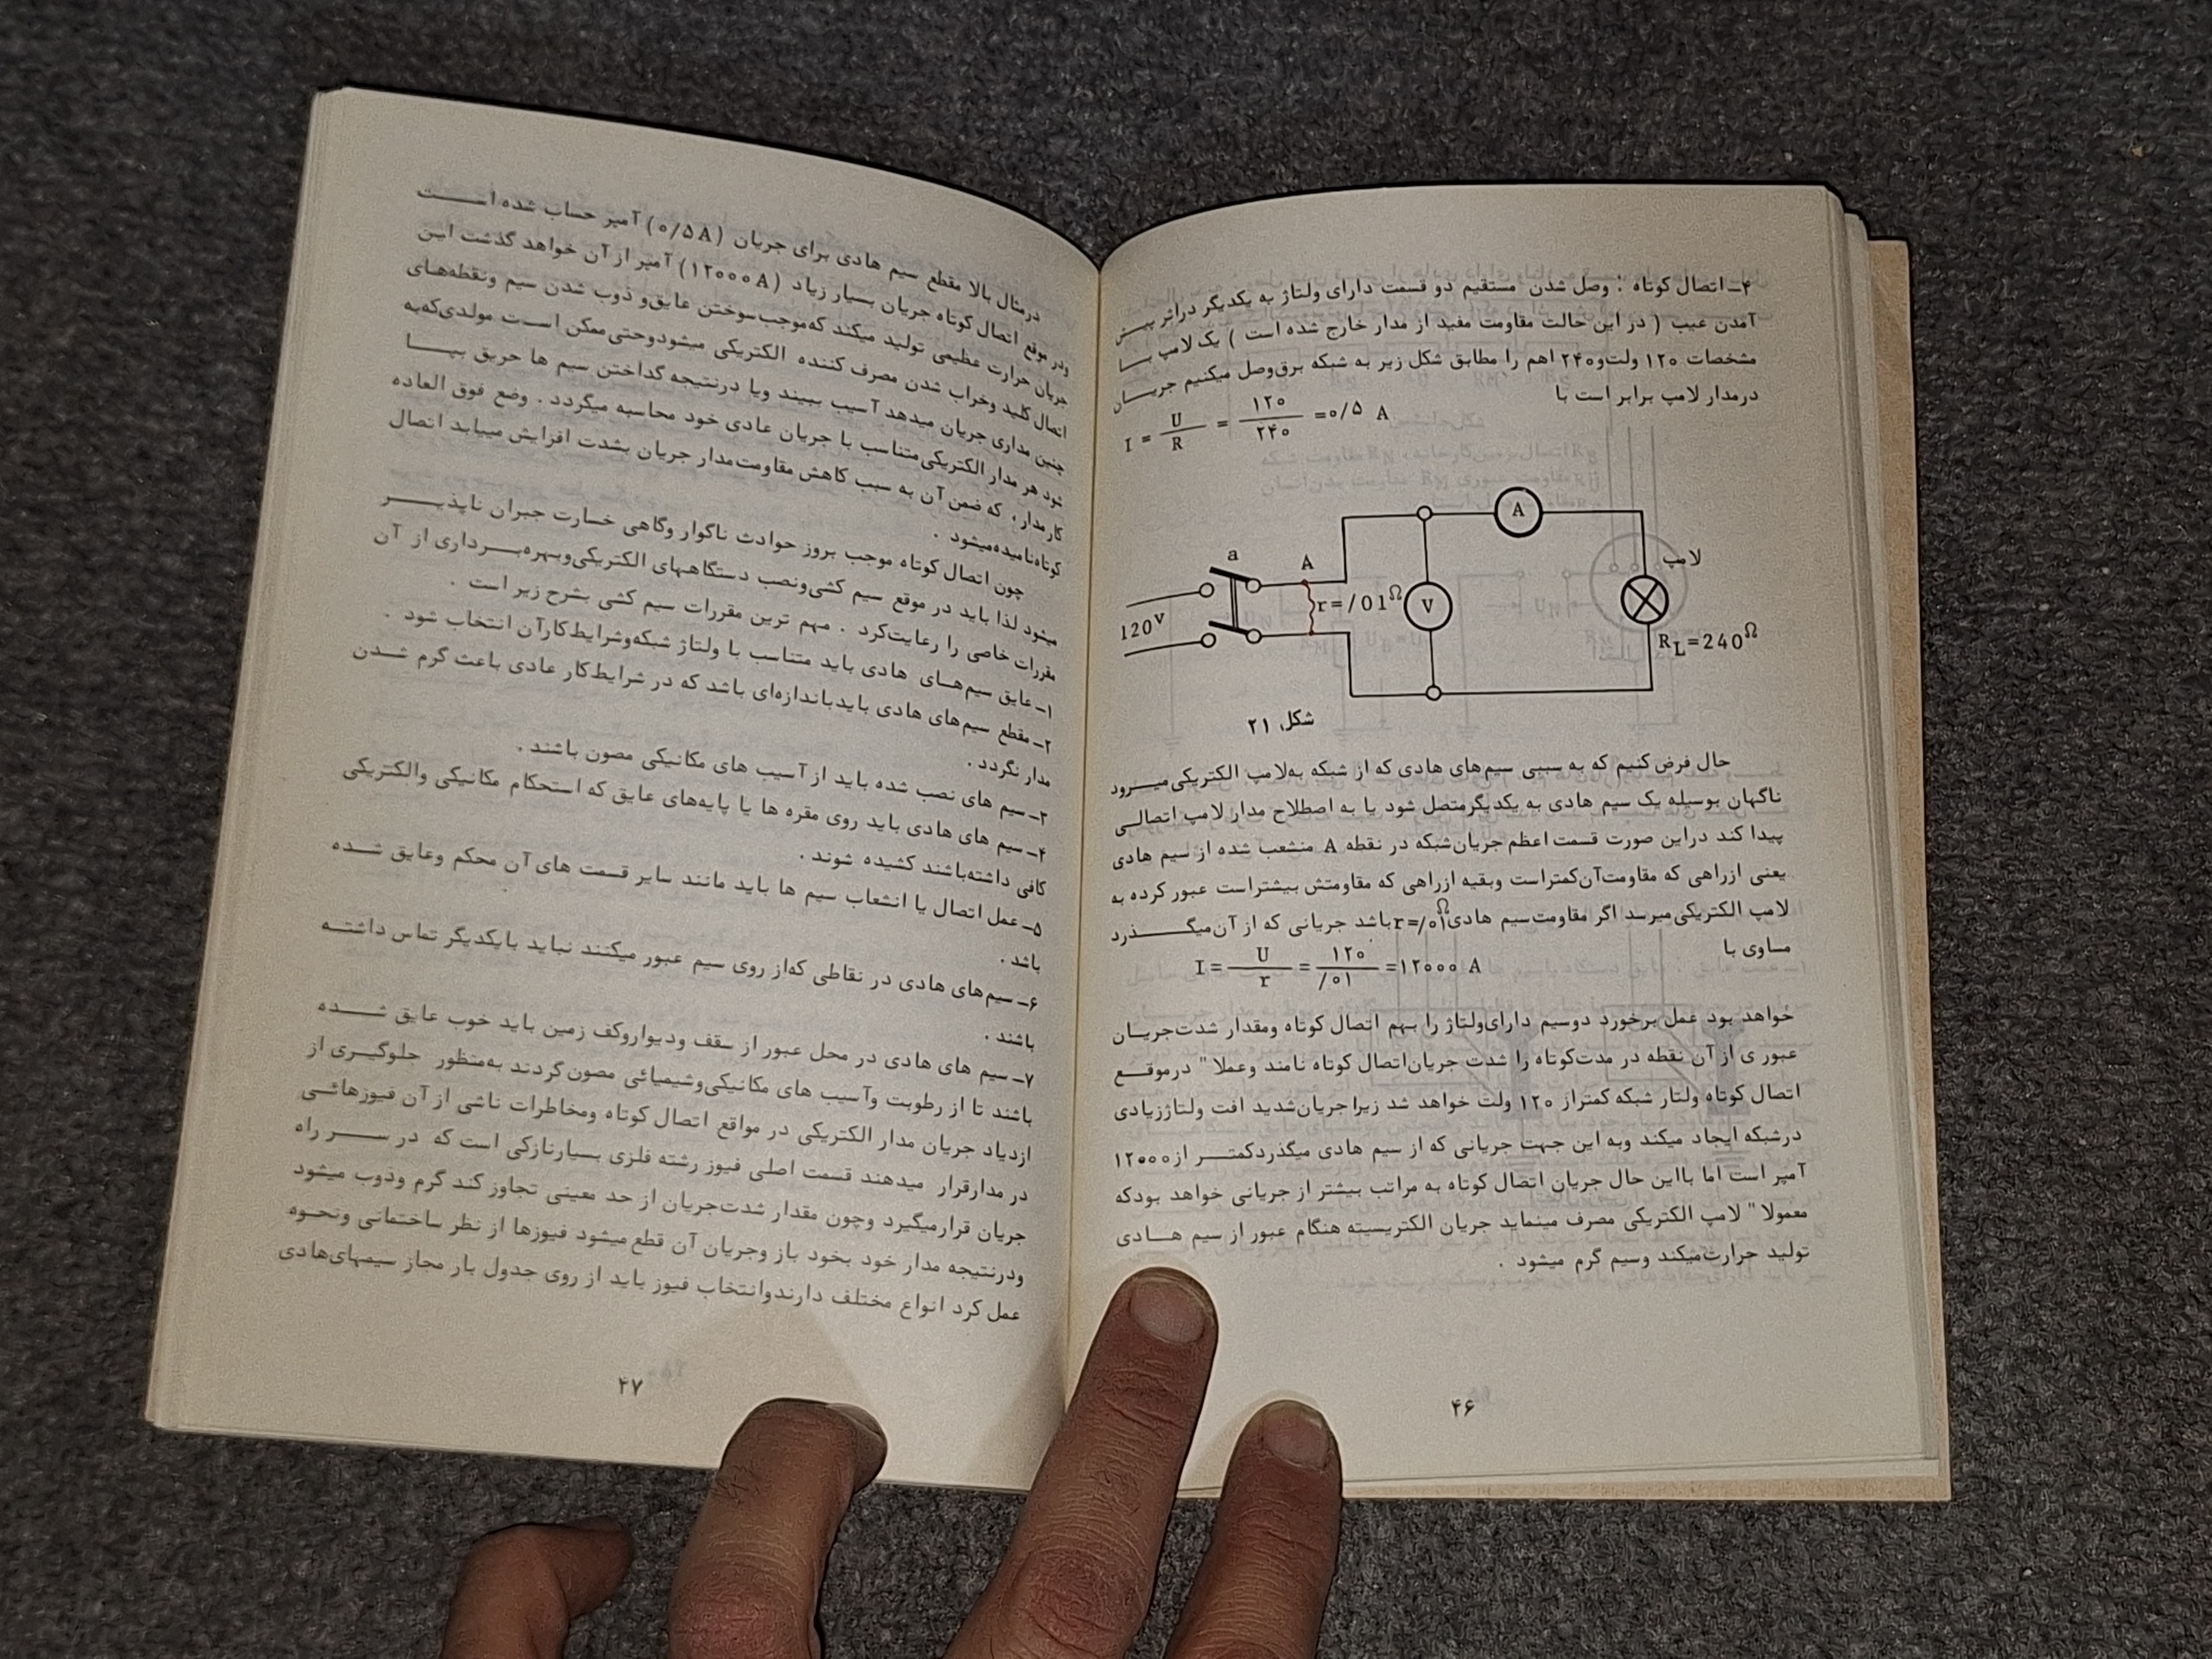 ۴ـ اتصال کوتاه : وصل شدن مستقیم دو قسمت دارای ولتاژ به یکدیگر دراثر پیـش
آمدن عیب ( در این حالت مقاومت مفید از مدار خارج شده است ) یک لامپ بـا
مشخصات ۱۲۰ ولت‌و ۲۴۰ اهم را مطابق شکل زیر به شبکه برق‌وصل میکنیم جریـان
درمدار لامپ برابر است با
I = U/R = ۱۲۰/۲۴۰ =۰/۵ A
A
a
A
لامپ
r=/01Ω
V
120v
RL=240Ω
شکل ۲۱
حال فرض کنیم که به سببی سیم‌های هادی که از شبکه به‌لامپ الکتریکی‌میـرود
ناگهان بوسیله یک سیم هادی به یکدیگرمتصل شود یا به اصطلاح مدار لامپ اتصالـی
پیدا کند دراین صورت قسمت اعظم جریان‌شبکه در نقطه A منشعب شده از سیم هادی
یعنی ازراهی که مقاومت‌آن‌کمتراست وبقیه ازراهی که مقاومتش بیشتراست عبور کرده به
لامپ الکتریکی‌میرسد اگر مقاومت‌سیم هادی r=/۰۱Ω باشد جریانی که از آن‌میگـذرد
مساوی با
I = U/r = ۱۲۰/‏/۰۱ =۱۲۰۰۰ A
خواهد بود عمل برخورد دوسیم دارای‌ولتاژ را بهم اتصال کوتاه ومقدار شدت‌جریـان
عبور ی از آن نقطه در مدت‌کوتاه را شدت جریان‌اتصال کوتاه نامند وعملا " درموقـع
اتصال کوتاه ولتار شبکه کمتراز ۱۲۰ ولت خواهد شد زیراجریان‌شدید افت ولتاژزیادی
درشبکه ایجاد میکند وبه این جهت جریانی که از سیم هادی میگذردکمتـر از ۱۲۰۰۰
آمپر است اما بااین حال جریان اتصال کوتاه به مراتب بیشتر از جریانی خواهد بودکه
معمولا " لامپ الکتریکی مصرف مینماید جریان الکتریسیته هنگام عبور از سیم هـادی
تولید حرارت‌میکند وسیم گرم میشود .
۴۶
درمثال بالا مقطع سیم هادی برای جریان (۰/۵A) آمپر حساب شده اسـت
ودر موقع اتصال کوتاه جریان بسیار زیاد (۱۲۰۰۰A) آمپر از آن خواهد گذشت ایـن
جریان حرارت عظیمی تولید میکند که‌موجب‌سوختن عایق‌و ذوب شدن سیم ونقطه‌هـای
اتصال کلید وخراب شدن مصرف کننده الکتریکی میشودوحتی‌ممکن اسـت مولدی‌که‌به
چنین مداری جریان میدهد آسیب ببیند ویا درنتیجه گداختن سیم ها حریق بپـا
شود هر مدار الکتریکی‌متناسب با جریان عادی خود محاسبه میگردد . وضع فوق العاده
کارمدار، که ضمن آن به سبب کاهش مقاومت‌مدار جریان بشدت افزایش مییابد اتصال
کوتاه‌نامیده‌میشود .
چون اتصال کوتاه موجب بروز حوادث ناگوار وگاهی خسارت جبران ناپذیـر
میشود لذا باید در موقع سیم کشی‌ونصب دستگاههای الکتریکی‌وبهره‌بـرداری از آن
مقررات خاصی را رعایت‌کرد . مهم ترین مقررات سیم کشی بشرح زیر است .
۱ـ عایق سیم‌هـای هادی باید متناسب با ولتاژ شبکه‌وشرایط‌کارآن انتخاب شود .
۲ـ مقطع سیم‌های هادی بایدباندازه‌ای باشد که در شرایط‌کار عادی باعث گرم شـدن
مدار نگردد .
۳ـ سیم های نصب شده باید از آسیب های مکانیکی مصون باشند .
۴ـ سیم های هادی باید روی مقره ها یا پایه‌های عایق که استحکام مکانیکی والکتریکی
کافی داشته‌باشند کشیده شوند .
۵ـ عمل اتصال یا انشعاب سیم ها باید مانند سایر قسمت های آن محکم وعایق شـده
باشد .
۶ـ سیم‌های هادی در نقاطی که‌از روی سیم عبور میکنند نباید بایکدیگر تماس داشتـه
باشند .
۷ـ سیم های هادی در محل عبور از سقف ودیواروکف زمین باید خوب عایق شـده
باشند تا از رطوبت وآسیب های مکانیکی‌وشیمیائی مصون‌گردند به‌منظور جلوگیـری از
ازدیاد جریان مدار الکتریکی در مواقع اتصال کوتاه ومخاطرات ناشی از آن فیوزهائـی
در مدارقرار میدهند قسمت اصلی فیوز رشته فلزی بسیارنازکی است که در سـر راه
جریان قرارمیگیرد وچون مقدار شدت‌جریان از حد معینی تجاوز کند گرم وذوب میشود
ودرنتیجه مدار خود بخود باز وجریان آن قطع‌میشود فیوزها از نظر ساختمانی ونحـوه
عمل کرد انواع مختلف دارندوانتخاب فیوز باید از روی جدول بار مجاز سیمهای‌هادی
۴۷